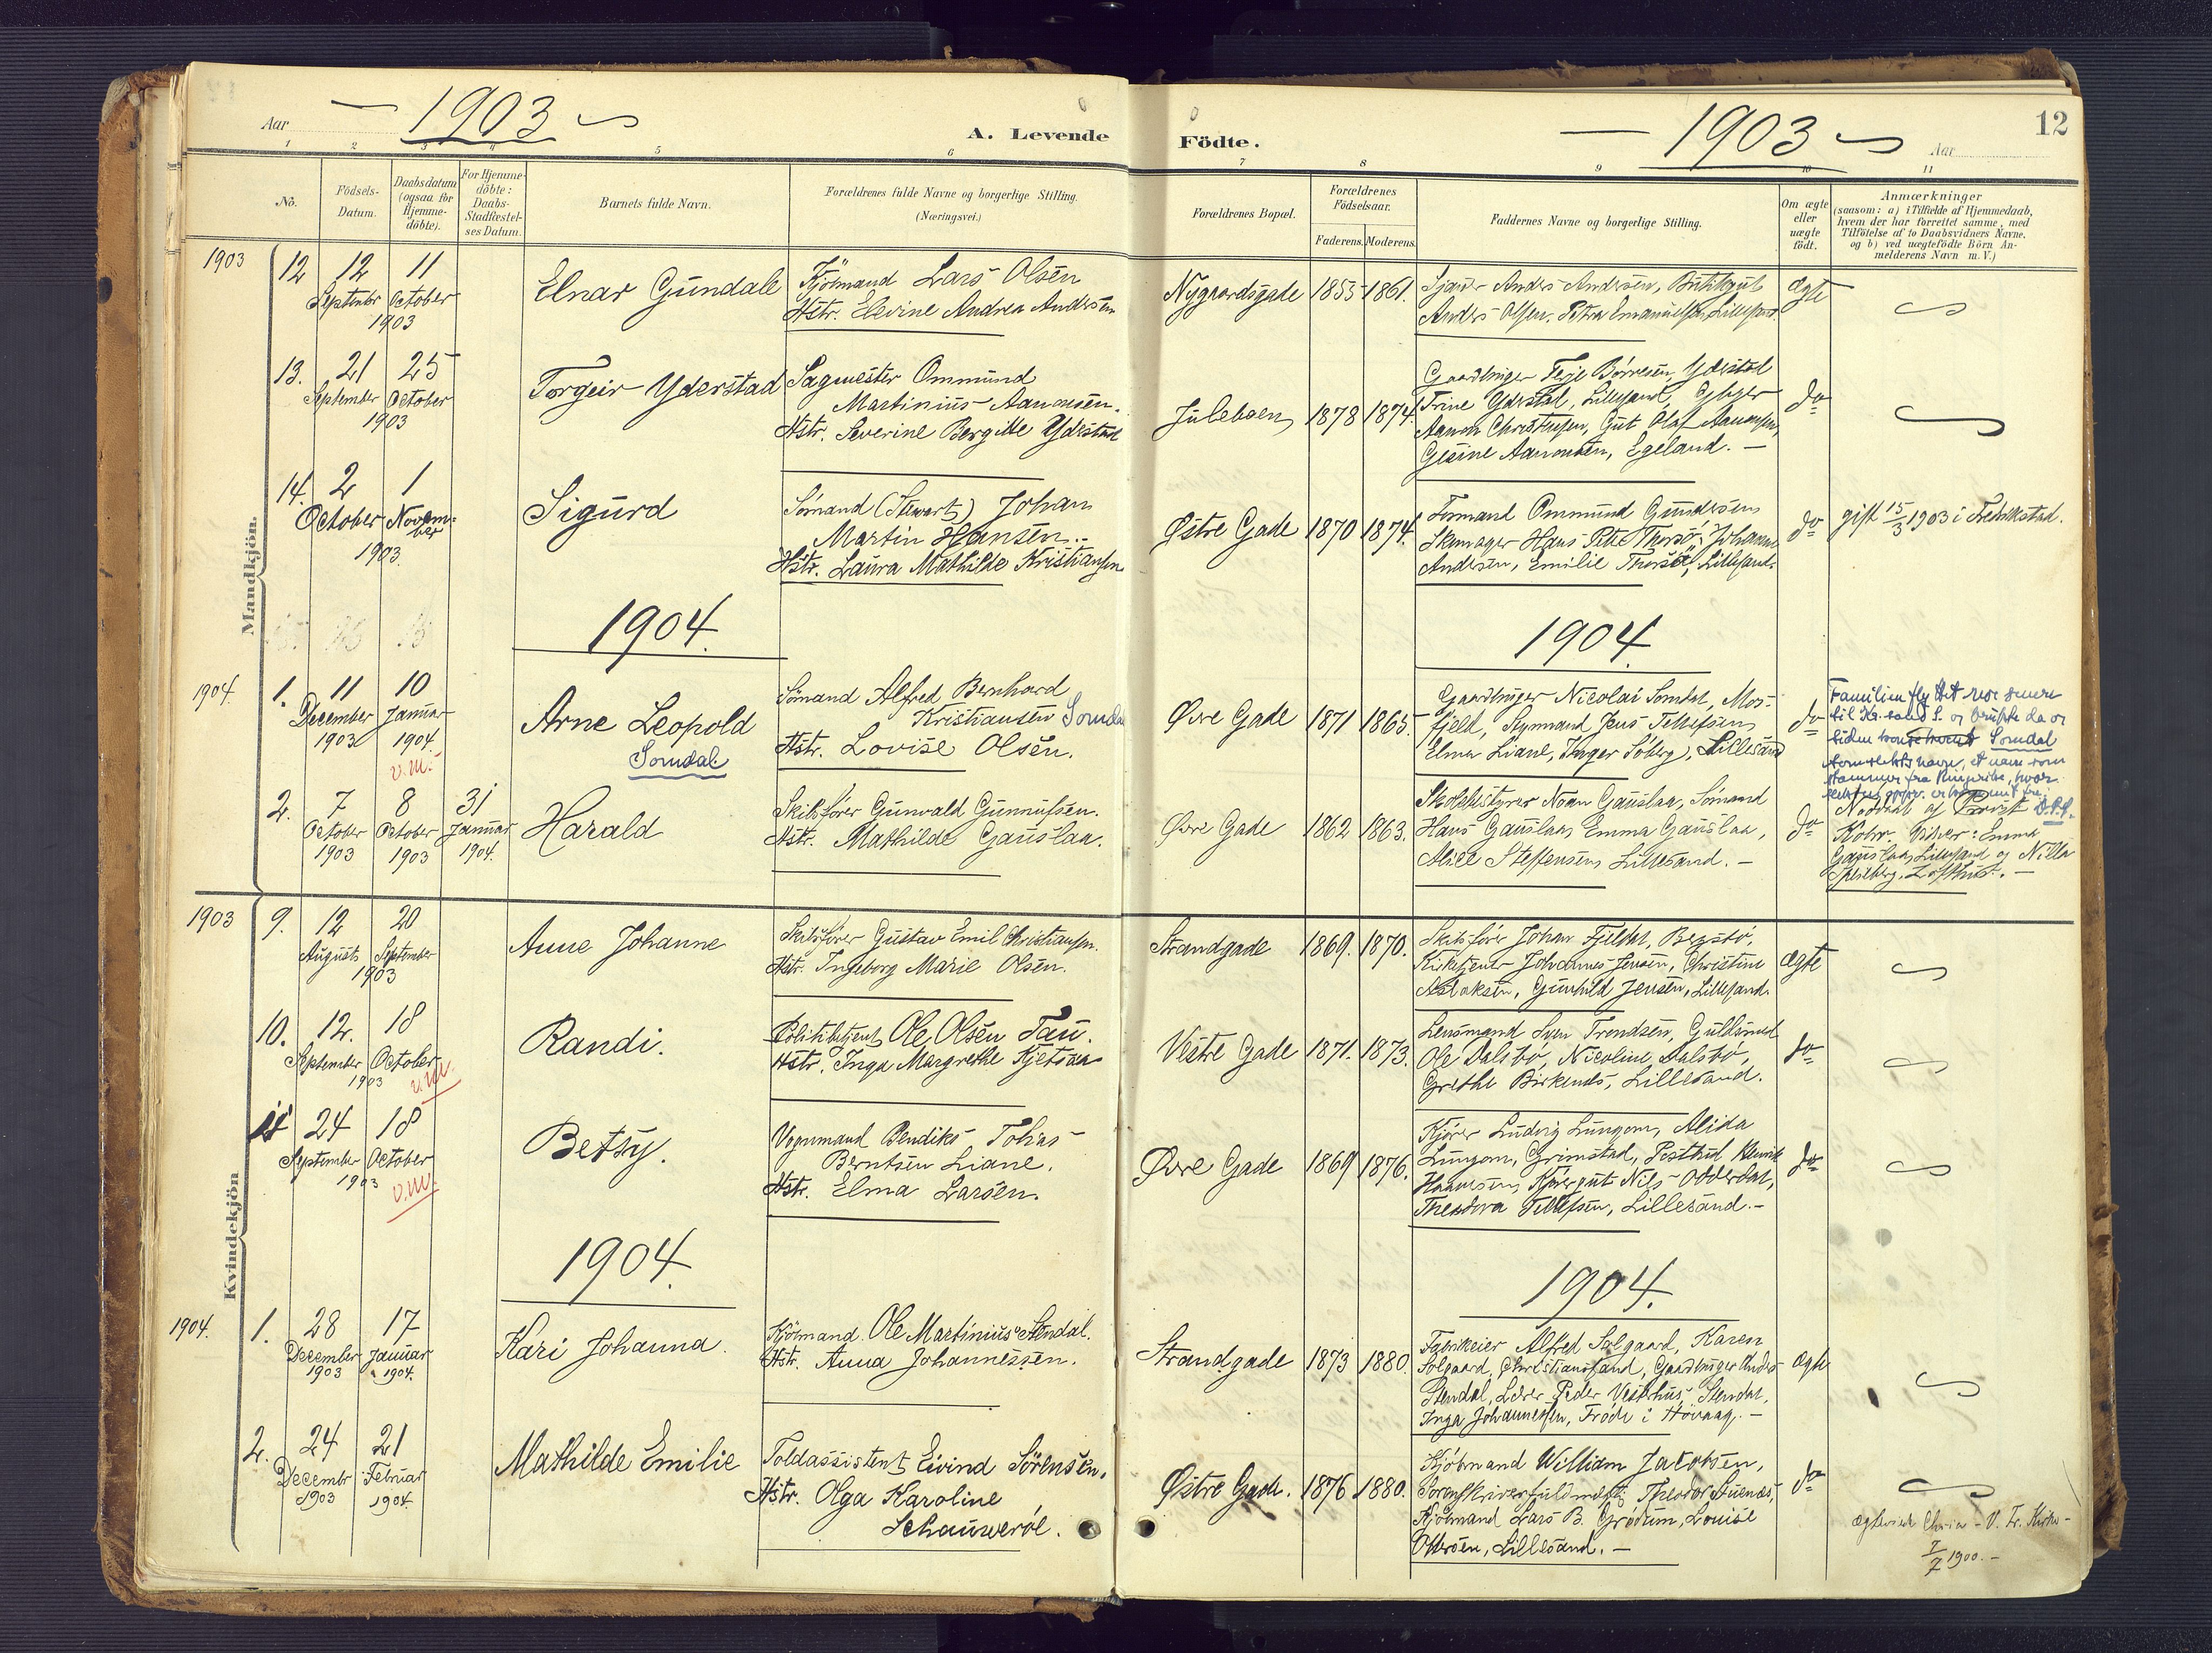 Aar — 1903 —
A. Levende
Födte.
— 1903 —
Aar
12
1 2 3 4 5 6 7 8 9 10 11
No.
Födsels-
Datum.
Daabsdatum
(ogsaa for
Hjemme-
döbte).
For Hjemme-
döbte:
Daabs-
Stadfæstel-
ses Datum.
Barnets fulde Navn.
Forældrenes fulde Navne og borgerlige Stilling.
(Næringsvei.)
Forældrenes Bopæl.
Forældrenes
Födselsaar.
Faderens. Moderens.
Faddernes Navne og borgerlige Stilling.
Om ægte
eller
uægte
födt.
Anmærkninger
(saasom: a) i Tilfælde af Hjemmedaab,
hvem der har forrettet samme, med
Tilföielse af to Daabsvidners Navne.
og b) ved uægtefödte Börn An-
melderens Navn m. V.)
Mandkjön.
1903
12
12
September
11
October
1903
Elnar Gundale
Kjöbmand Lars Olsen
Hstr. Elevine Andrea Andersen
Nygaardsgade
1855
1861.
Sjauer Anders Andersen, Butikgut
Anders Olsen. Petra Emanuelsen, Lillesand.
Ægte
13.
21
September
25
October
1903
Torgeir Yderstad
Sagmester Ommund
Martinius Aanonsen.
Hstr. Severine Bergitte Yderstad
Juleboen
1878
1874.
Gaardbruger Terje Börresen Yderstad
Trine Yderstad, Lillesand,
Aanon Christensen, Gut Olaf Aanonsen,
Gesine Aanonsen, Egeland. —
do
14.
2
October
1
Novem-
ber
1903.
Sigurd
Sömand (Stewart) Johan
Martin Hansen.
Hstr. Laura Mathilde Kristiansen
Østre Gade
1870
1874.
Formand Ommund Gundersen
Skomager Hans Peter Thorsö, Johanne
Andersen, Emilie Thorsö, Lillesand.
do
gift 15/3 1903 i Fredrikstad.
1904.
1904.
1904.
1.
11
December
1903
10
Januar
1904.
v.m.
Arne Leopold
Somdal.
Sömand Alfred Bernhard
Kristiansen Somdal
Hstr. Lovise Olsen.
Øvre Gade
1871
1865
Gaardbruger Nicolai Somdal, Mos-
fjeld, Styrmand Jens Tellefsen
Elma Liane, Inger Soberg, Lillesand
do
Familien flyttet senere
til Kr.sand S. og brugte da og
siden Somdal
som slektsnavn, et navn som
stammer fra
2.
7
October
1903
8
October
1903
31
Januar
1904.
Harald
Skibsförer Gunvald Gunnufsen.
Hstr. Mathilde Gauslaa.
Øvre Gade
1862
1863.
Skolebestyrer Noan Gauslaa, Sömand
Hans Gauslaa, Emma Gauslaa,
Alice Steffensen Lillesand. —
do
Nöddaab af Provst
Emma
Gauslaa, Lillesand og Nilla
Lofthus. —
Kvindekjön
1903
9.
12
August
20
September
1903
Anne Johanne
Skibsförer Gustav Emil Christiansen.
Hstr. Ingeborg Marie Olsen.
Strandgade
1869.
1870.
Skibsförer Johan Fjeldal, Bergstö,
Kirketjener Johannes Jensen, Christine
Aslaksen, Gunhild Jensen, Lillesand.
Ægte
10.
12.
September
18
October
1903
v.m.
Randi.
Politibetjent Ole Olsen Tau.
Hstr. Inga Margrethe Kjetsaa
Vestre Gade
1871.
1873.
Lensmand Sven Trondsen, Guldsmed
Ole Dalsbö, Nicoline Dalsbö,
Grethe Birkenes, Lillesand.
do
11
24
September
18
October
1903
v.m.
Betsy.
Vognmand Bendiks Tobias
Berntsen Liane.
Hstr. Elma Larsen.
Øvre Gade
1869
1876.
Kjörer Ludvig Lungom, Alida
Lungom, Grimstad, Postbud Henrik
Haavesen, Kjöregut Nils Odderdal,
Theodora Tellefsen, Lillesand. —
do
1904.
1904.
1904.
1.
28
December
1903
17
Januar
1904.
Kari Johanna.
Kjöbmand Ole Martinius Stendal.
Hstr. Anna Johannessen.
Strandgade
1873
1880
Fabrikeier Alfred Solgaard, Karen
Solgaard, Christianssand, Gaardbruger Anders
Stendal, Lærer Peder Vesterhus, Stendal,
Inga Johannessen, Tröde i Hövaag. —
Ægte
2.
24
December
1903
21
Februar
1904.
Mathilde Emilie
Toldassistent Eivind Sörensen.
Hstr. Olga Karoline
Schauweröl.
Østre Gade.
1876
1880.
Kjöbmand William Jacobsen,
Sorenskriverfuldmægtig Theodor Stuenæs,
Kjöbmand Lars B. Grödum, Louise
Ottersen, Lillesand. —
do
1900. —